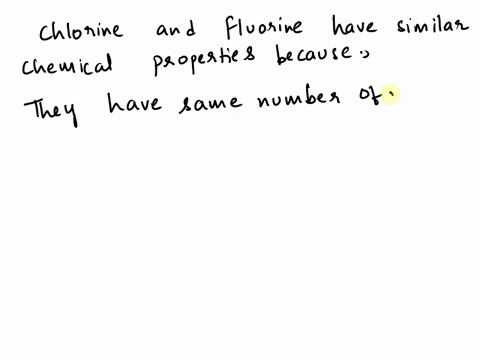 Chlorine and fluorine have similar
chemical properties because,
They have same number of